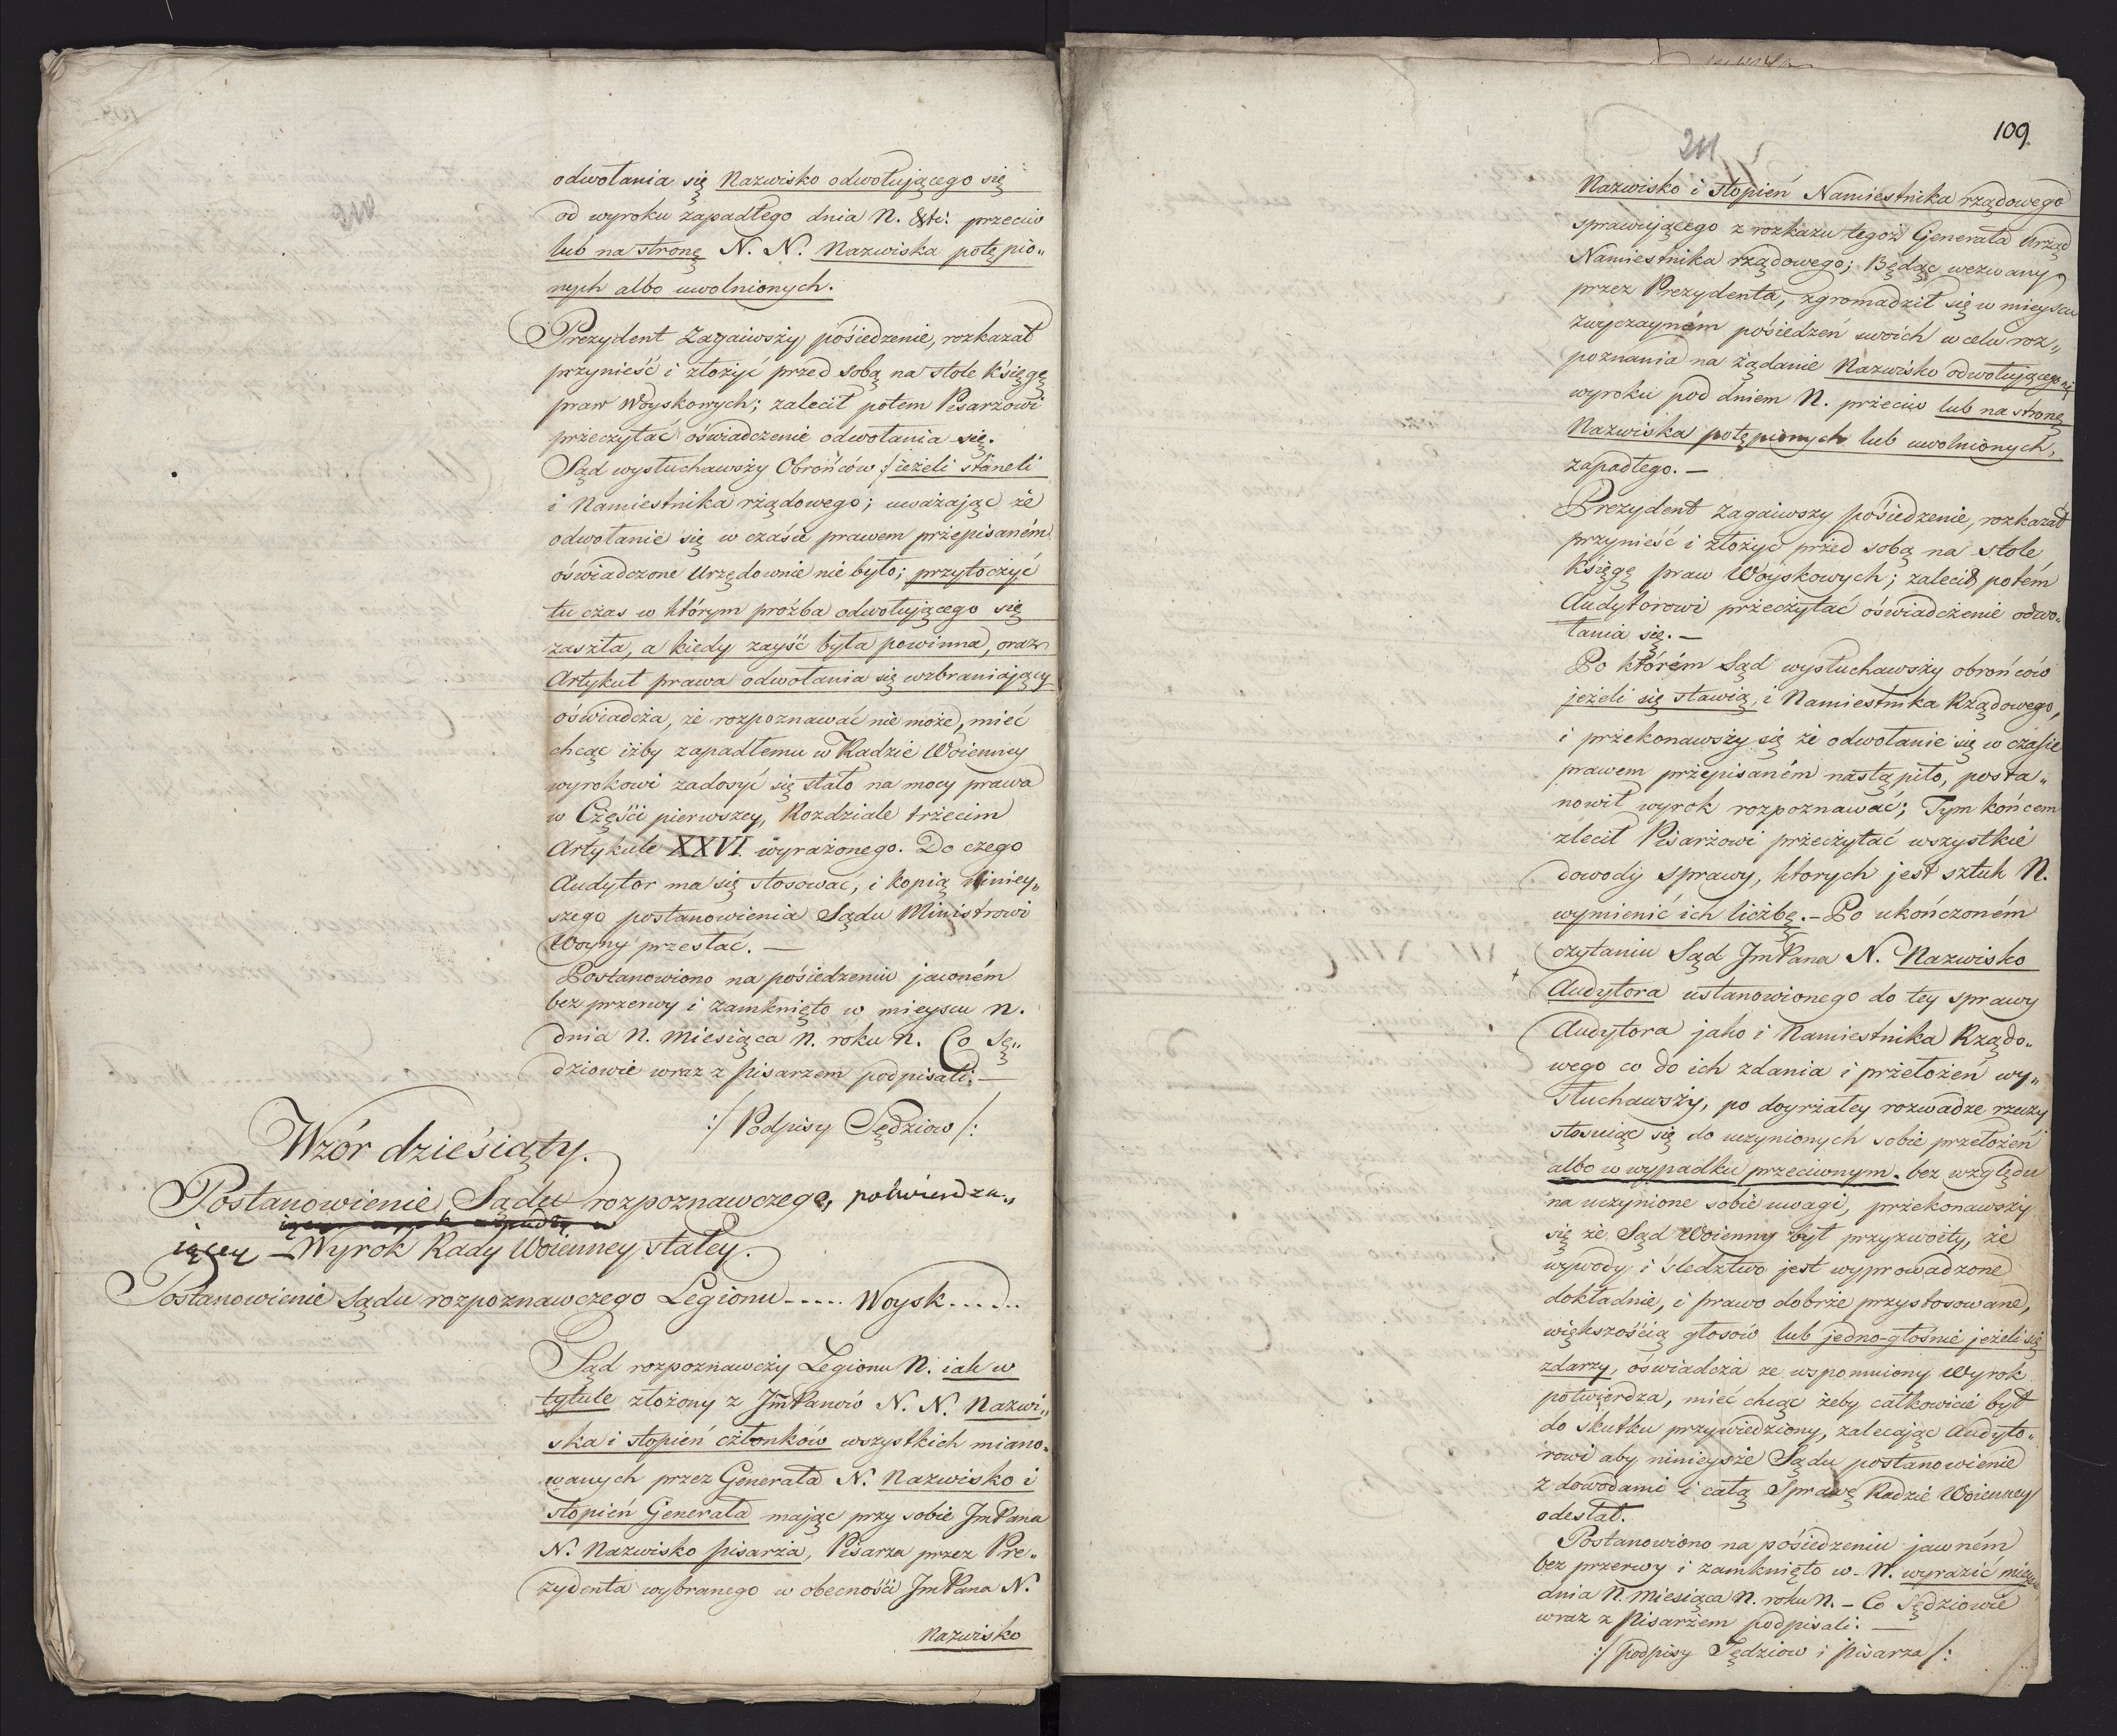 odwołania się Nazwisko odwołującego się
od wyroku zapadłego dnia N. &tc: przeciw
lub na stronę N. N. Nazwiska potępio„
nych albo uwolnionych.
Prezydent Zagaiwszy pośiedzenie, rozkazał
przynieść i złożyć przed sobą na stole Księgę
praw Woyskowych; zalecił potem Pisarzowi
przeczytać oświadczenie odwołania się.
Sąd wysłuchawszy Obrońców :/ ieżeli stáneli
i Namiestnika rządowego; uważając że
odwołanie się w czasie prawem przepisaném
oświadczone Urzędownie nie było; przytoczyć
tu czas w którym proźba odwołującego się
zaszła, a kiedy zayść była powinna, oraz
Artykuł prawa odwołania się wzbraniający
oświadcza, że rozpoznawać nie może, mieć
chcąc iżby zapadłemu w Radzie Woienney
wyrokowi zadosyć się stało na mocy prawa
w Części pierwszey, Rozdziale trzecim
Artykule XXVI. wyrażonego. Do czego
Audytor ma się stosować, i kopią niniey„
szego postanowienia Sądu Ministrowi
Woyny przesłać. —
Postanowiono na pośiedzeniu jawném
bez przerwy i zamknięto w mieyscu N.
dnia N. Miesiąca N. roku N. Co Sę„
dziowie wraz z Pisarzem podpisali. —
:/ Podpisy Sędziow /:
Wzór dzieśiąty.
Postanowienie Sądu rozpoznawczego, potwierdza„
iącey — Wyrok Rady Woienney stałey.
Postanowienie Sądu rozpoznawczego Legionu ..... Woysk .....
Sąd rozpoznawczy Legionu N. iak w
tytule złożony z JmPanów N. N. Nazwi„
ska i stopień członków wszystkich miano„
wanych przez Generała N. Nazwisko i
stopień Generała mając przy sobie JmPana
N. Nazwisko pisarza, Pisarza przez Pre„
zydenta wybranego w obecności JmPana N.
Nazwisko
109.
211
Nazwisko i stopień Namiestnika rządowego
sprawującego z rozkazu tegoż Generała Urząd
Namiestnika rządowego; Będąc wezwany
przez Prezydenta, zgromadził się w mieyscu
zwyczayném pośiedzeń swoich w celu roz„
poznania na żądanie Nazwisko odwołującego się
wyroku pod dniem N. przeciw lub na stronę
Nazwiska potępionych lub uwolnionych,
zapadłego. —
Prezydent Zagaiwszy pośiedzenie, rozkazał
przynieść i złożyć przed sobą na stole
Księgę praw Woyskowych; zalecił potém
Audytorowi przeczytać oświadczenie odwo„
łania się. —
Po którém Sąd wysłuchawszy obrońców
jeżeli się stawią, i Namiestnika Rządowego,
i przekonawszy się że odwołanie się w czasie
prawem przepisaném nastąpiło, posta„
nowił wyrok rozpoznawać; Tym końcem
zlecił Pisarzowi przeczytać wszystkie
dowody sprawy, ktorych jest sztuk N.
wymienić ich liczbę. — Po ukończoném
czytaniu Sąd JmPana N. Nazwisko
Audytora ustanowionego do tey sprawy
Audytora jako i Namiestnika Rządo„
wego co do ich zdania i przełożeń wy„
słuchawszy, po doyrzałey rozwadze rzeczy
stosuiąc się do uczynionych sobie przełożeń
albo w wypadku przeciwnym. bez względu
na uczynione sobie uwagi, przekonawszy
się że Sąd Woienny był przyzwoity, że
wywody i śledztwo jest wyprowadzone
dokładnie, i prawo dobrze przystosowane,
większością głosow lub jedno-głośnie jeżeli się
zdarzy, oświadcza ze wspomniony Wyrok
potwierdza, mieć chcąc żeby całkowicie był
do skutku przywiedziony, zalecając Audyto„
rowi aby ninieysze Sądu postanowienie
z dowodami i całą Sprawę Radzie Woienney
odesłał.
Postanowiono na pośiedzeniu jawném
bez przerwy i zamknięto w — N. wyrazić
dnia N. Miesiąca N. roku N. — Co Sędziowie
wraz z Pisarzem podpisali: —
:/ podpisy Sędziow i Pisarza /: